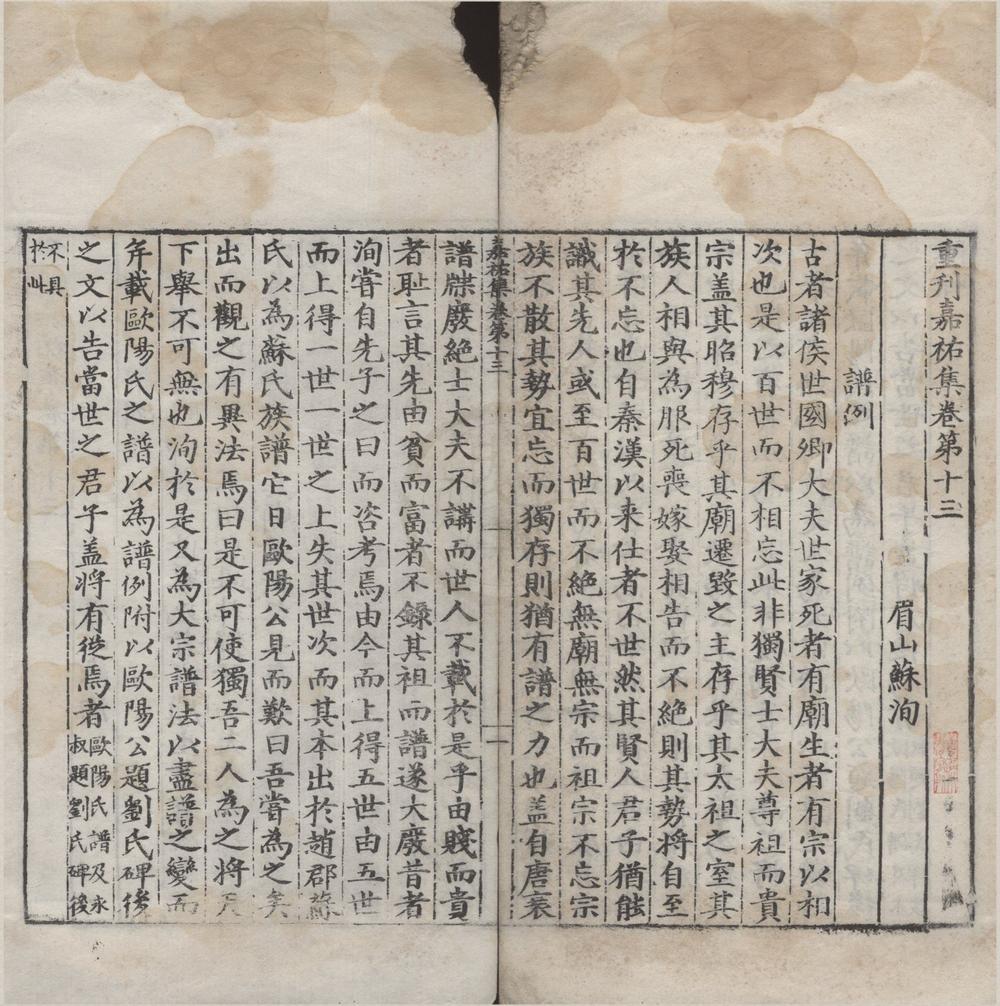 重刋嘉祐集卷第十三
眉山蘇洵
譜例
古者諸侯世國卿大夫世家死者有廟生者有宗以相
次也是以百世而不相忘此非獨賢士大夫尊祖而貴
宗盖其昭穆存乎其廟遷毀之主存乎其太祖之室其
族人相與為服死喪嫁娶相告而不絶則其勢將自至
於不忘也自秦漢以来仕者不世然其賢人君子猶能
識其先人或至百世而不絶無廟無宗而祖宗不忘宗
族不散其勢宜忘而獨存則猶有譜之力也盖自唐衰
嘉祐集卷第十三
一
譜牒廢絶士大夫不講而世人不載於是乎由賤而貴
者耻言其先由貧而富者不錄其祖而譜遂大廢昔者
洵嘗自先子之曰而咨考焉由今而上得五世由五世
而上得一世一世之上失其世次而其本出於趙郡蘇
氏以為蘇氏族譜它日歐陽公見而歎曰吾嘗為之矣
出而觀之有異法焉曰是不可使獨吾二人為之將天
下舉不可無也洵於是又為大宗譜法以盡譜之變而
并載歐陽氏之譜以為譜例附以歐陽公題劉氏碑後
之文以告當世之君子盖將有從焉者歐陽氏譜及永
叔題劉氏碑後
不具
於此